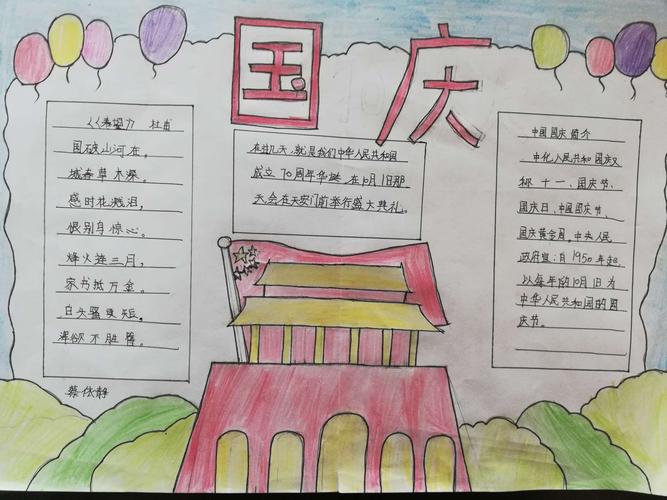 国庆
《希望》 杜甫
国破山河在。
城春草木深。
感时花溅泪，
恨别自惊心。
烽火连三月，
家书抵万金。
白头骚更短。
浑欲不胜簪。
蔡依静
在过几天，就是我们中华人民共和国
成立70周年华诞，在10月1日那
天会在天安门前举行盛大典礼。
中国国庆简介
中化人民共和国庆又
称十一、国庆节、
国庆日、中国国庆节、
国庆黄金周。中央人民
政府宣：自1950年起，
以每年的10月1日为
中华人民共和国的国
庆节。